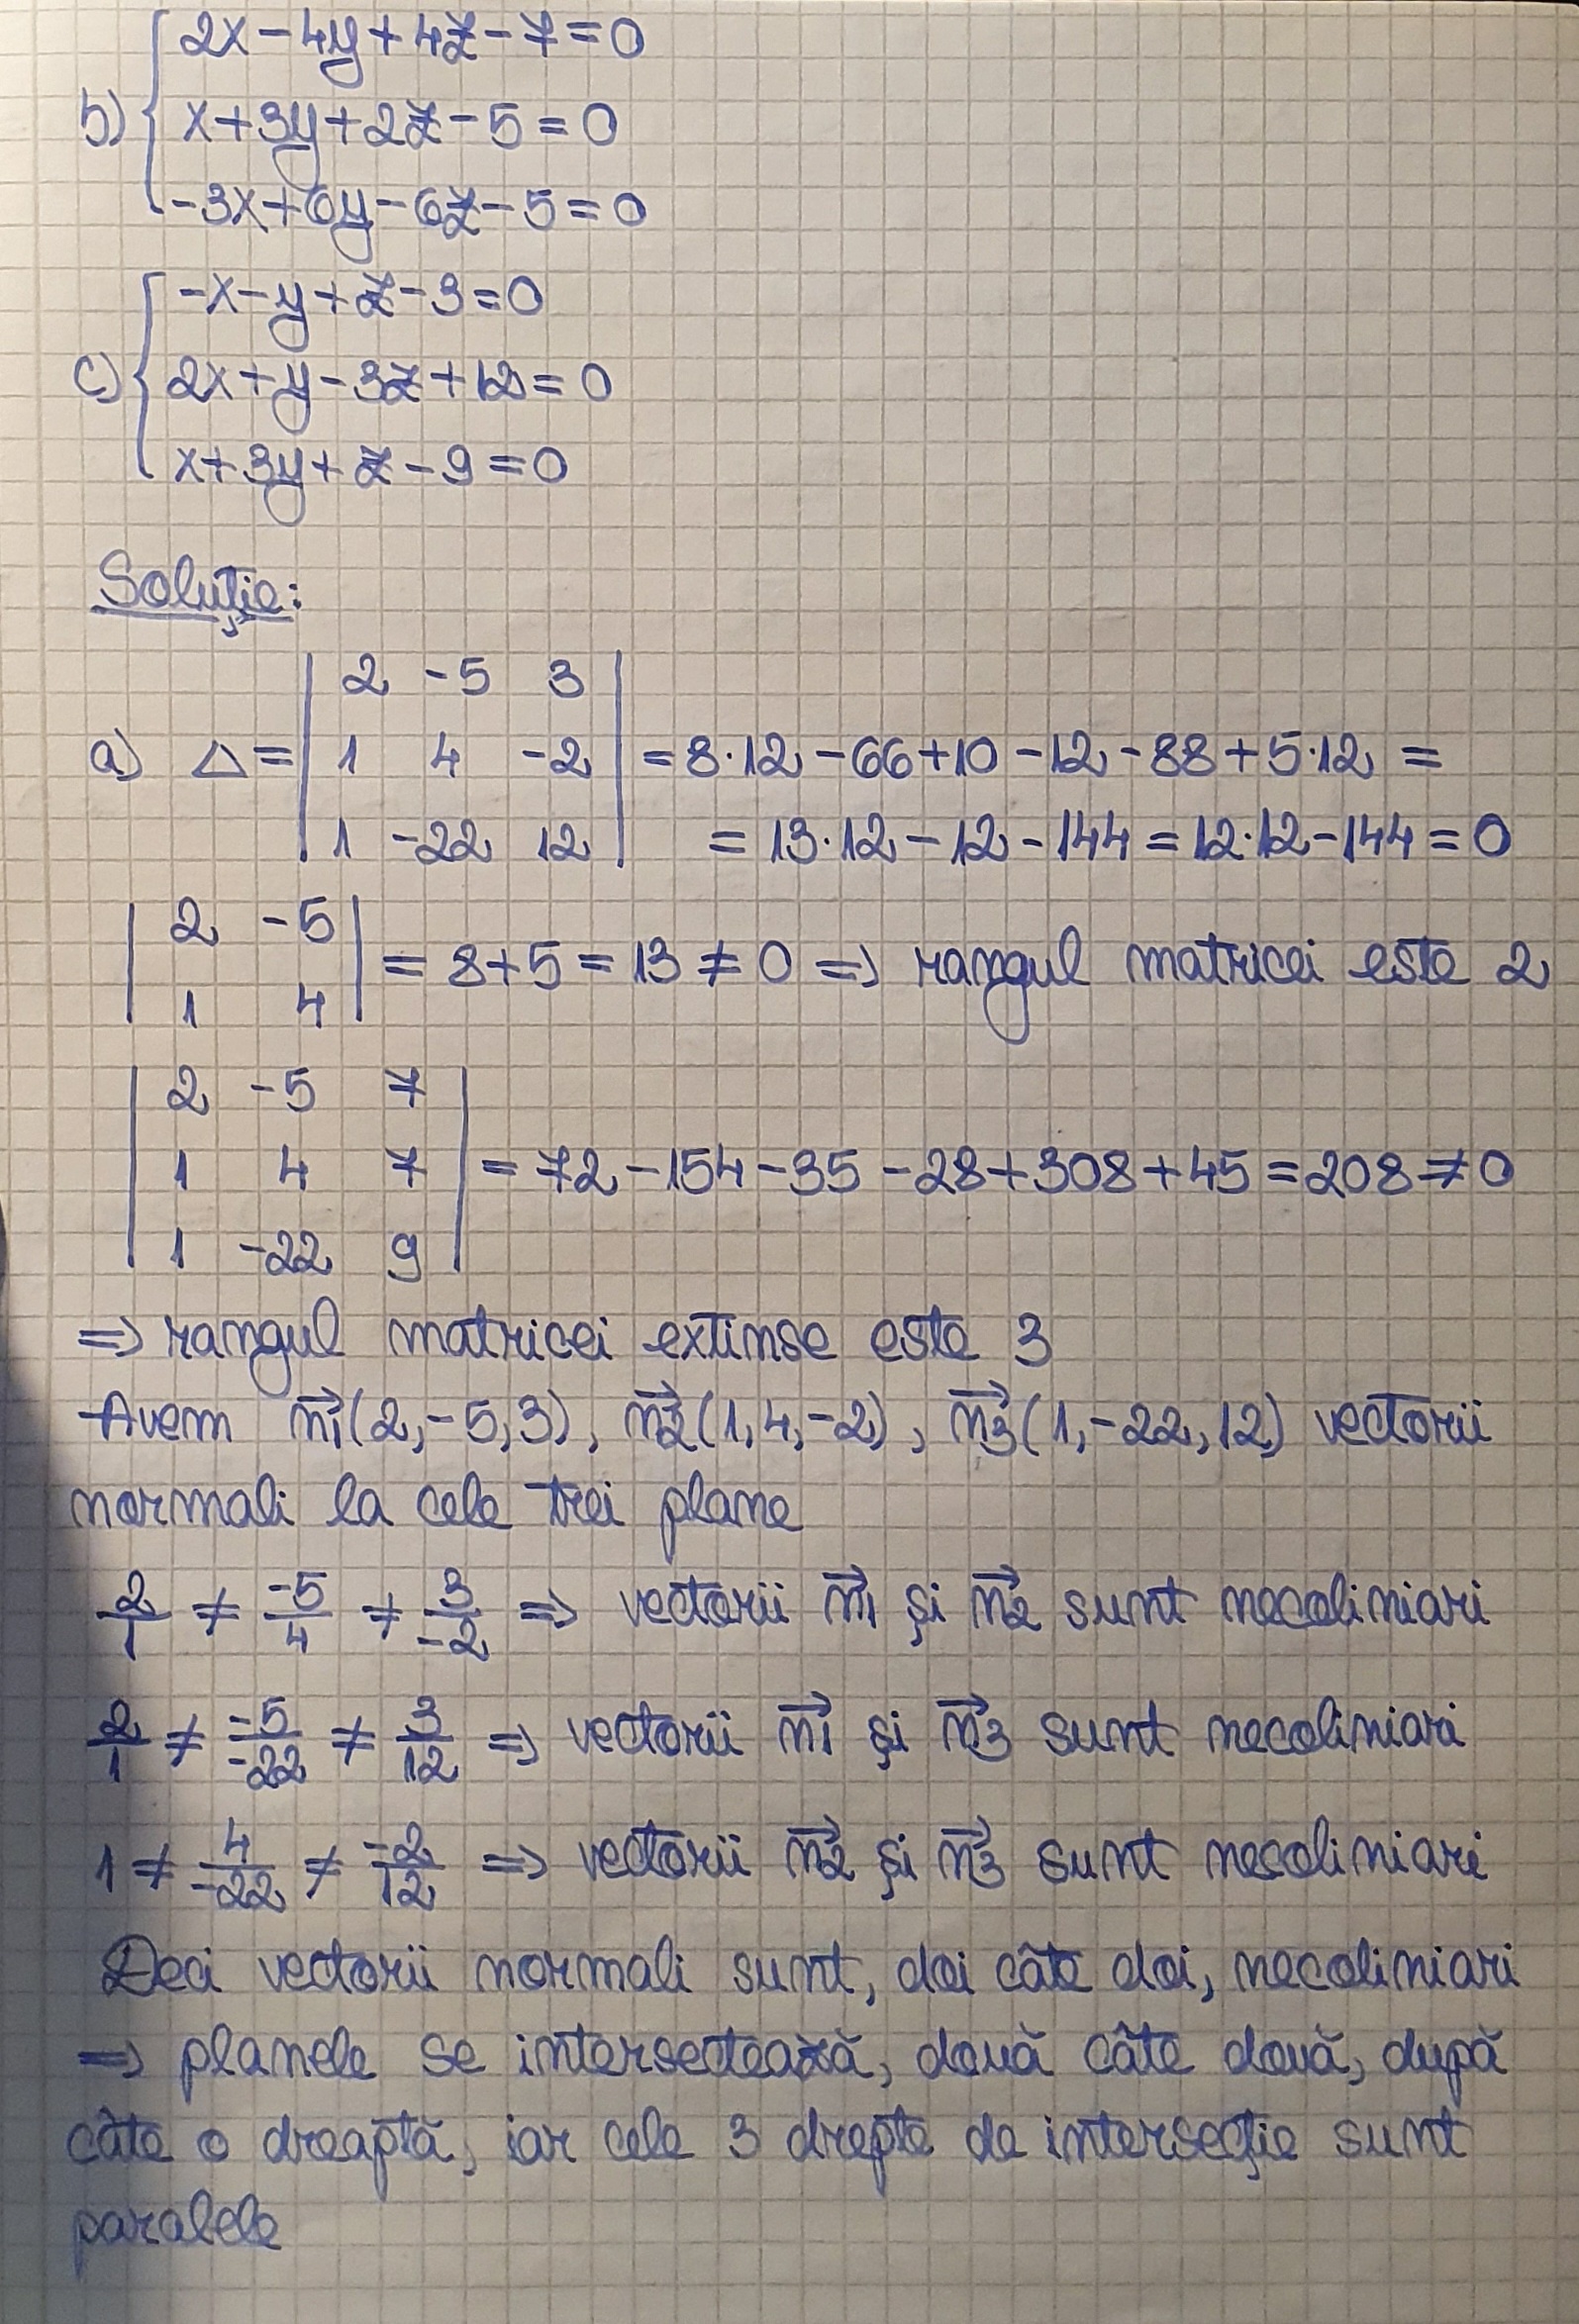 2x-4y+4z-7=0
b) x+3y+2z-5=0
-3x+6y-6z-5=0
-x-y+z-3=0
c) 2x+y-3z+12=0
x+3y+z-9=0
Soluție:
2 -5 3
a) Δ= 1 4 -2 =8·12-66+10-12-88+5·12=
1 -22 12 =13·12-12-144=12·12-144=0
2 -5
=8+5=13≠0 => rangul matricei este 2
1 4
2 -5 7
1 4 7 =72-154-35-28+308+45=208≠0
1 -22 9
=> rangul matricei extinse este 3
Avem n1(2,-5,3), n2(1,4,-2), n3(1,-22,12) vectorii
normali la cele trei plane
2/1 ≠ -5/4 ≠ 3/-2 => vectorii n1 și n2 sunt necoliniari
2/1 ≠ -5/-22 ≠ 3/12 => vectorii n1 și n3 sunt necoliniari
1 ≠ 4/-22 ≠ -2/12 => vectorii n2 și n3 sunt necoliniari
Deci vectorii normali sunt, doi câte doi, necoliniari
=> planele se intersectează, două câte două, după
câte o dreaptă, iar cele 3 drepte de intersecție sunt
paralele